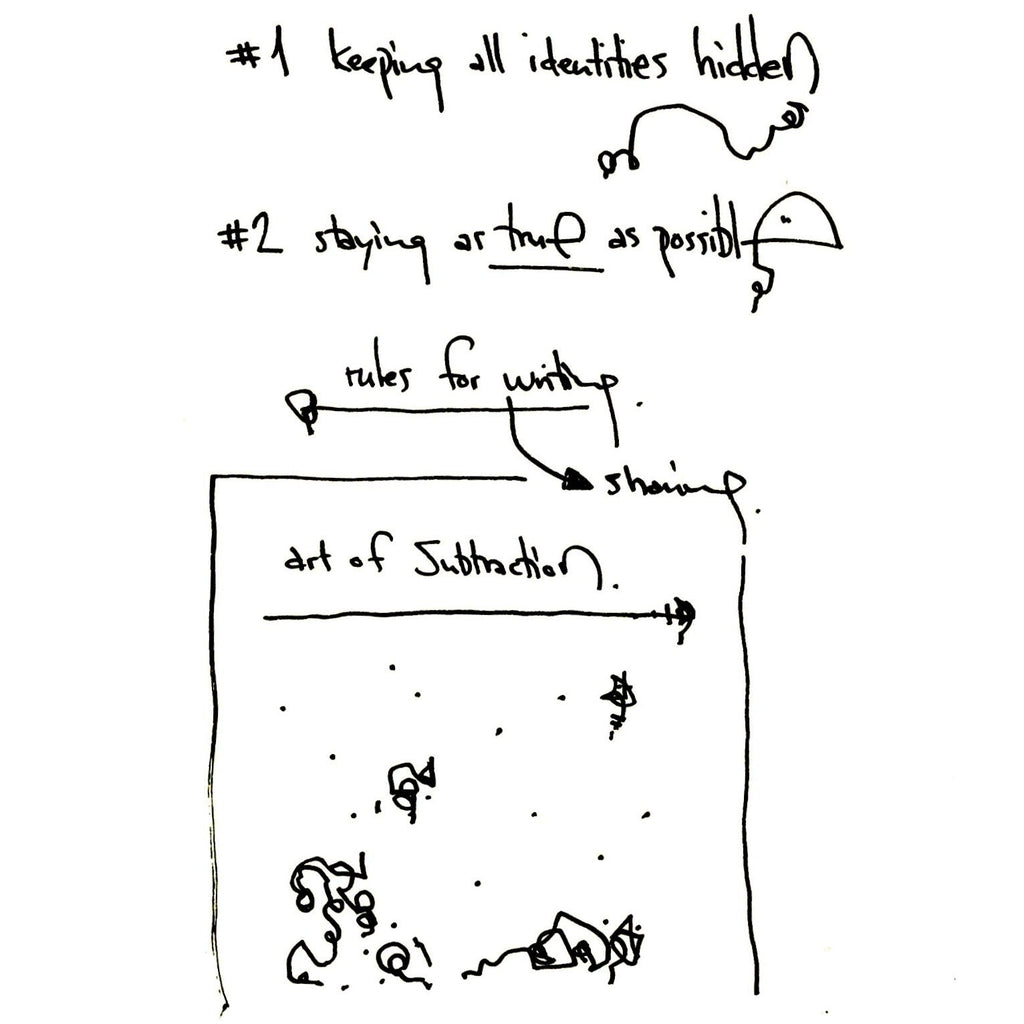 #1 keeping all identities hidden
#2 staying as true as possible
rules for writing.
sharing.
art of Subtraction.